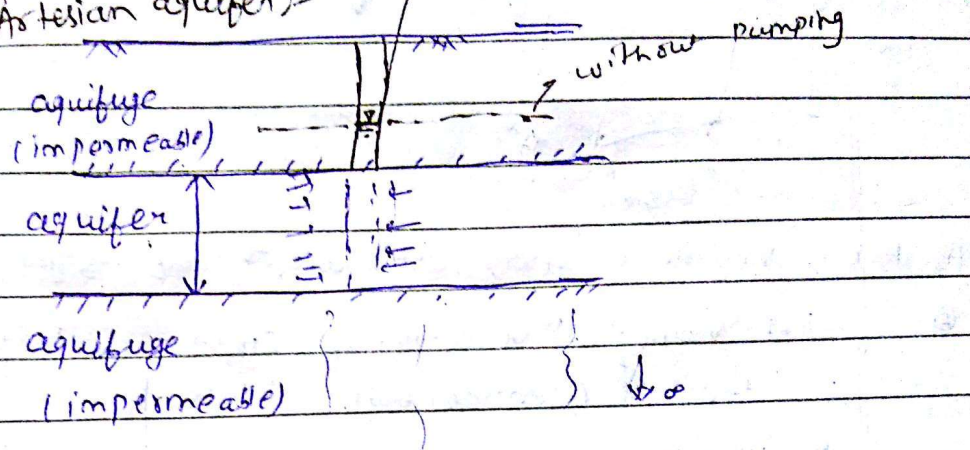 Artesian aquifer:-
without pumping
aquifuge
(impermeable)
aquifer
aquifuge
(impermeable)
∞